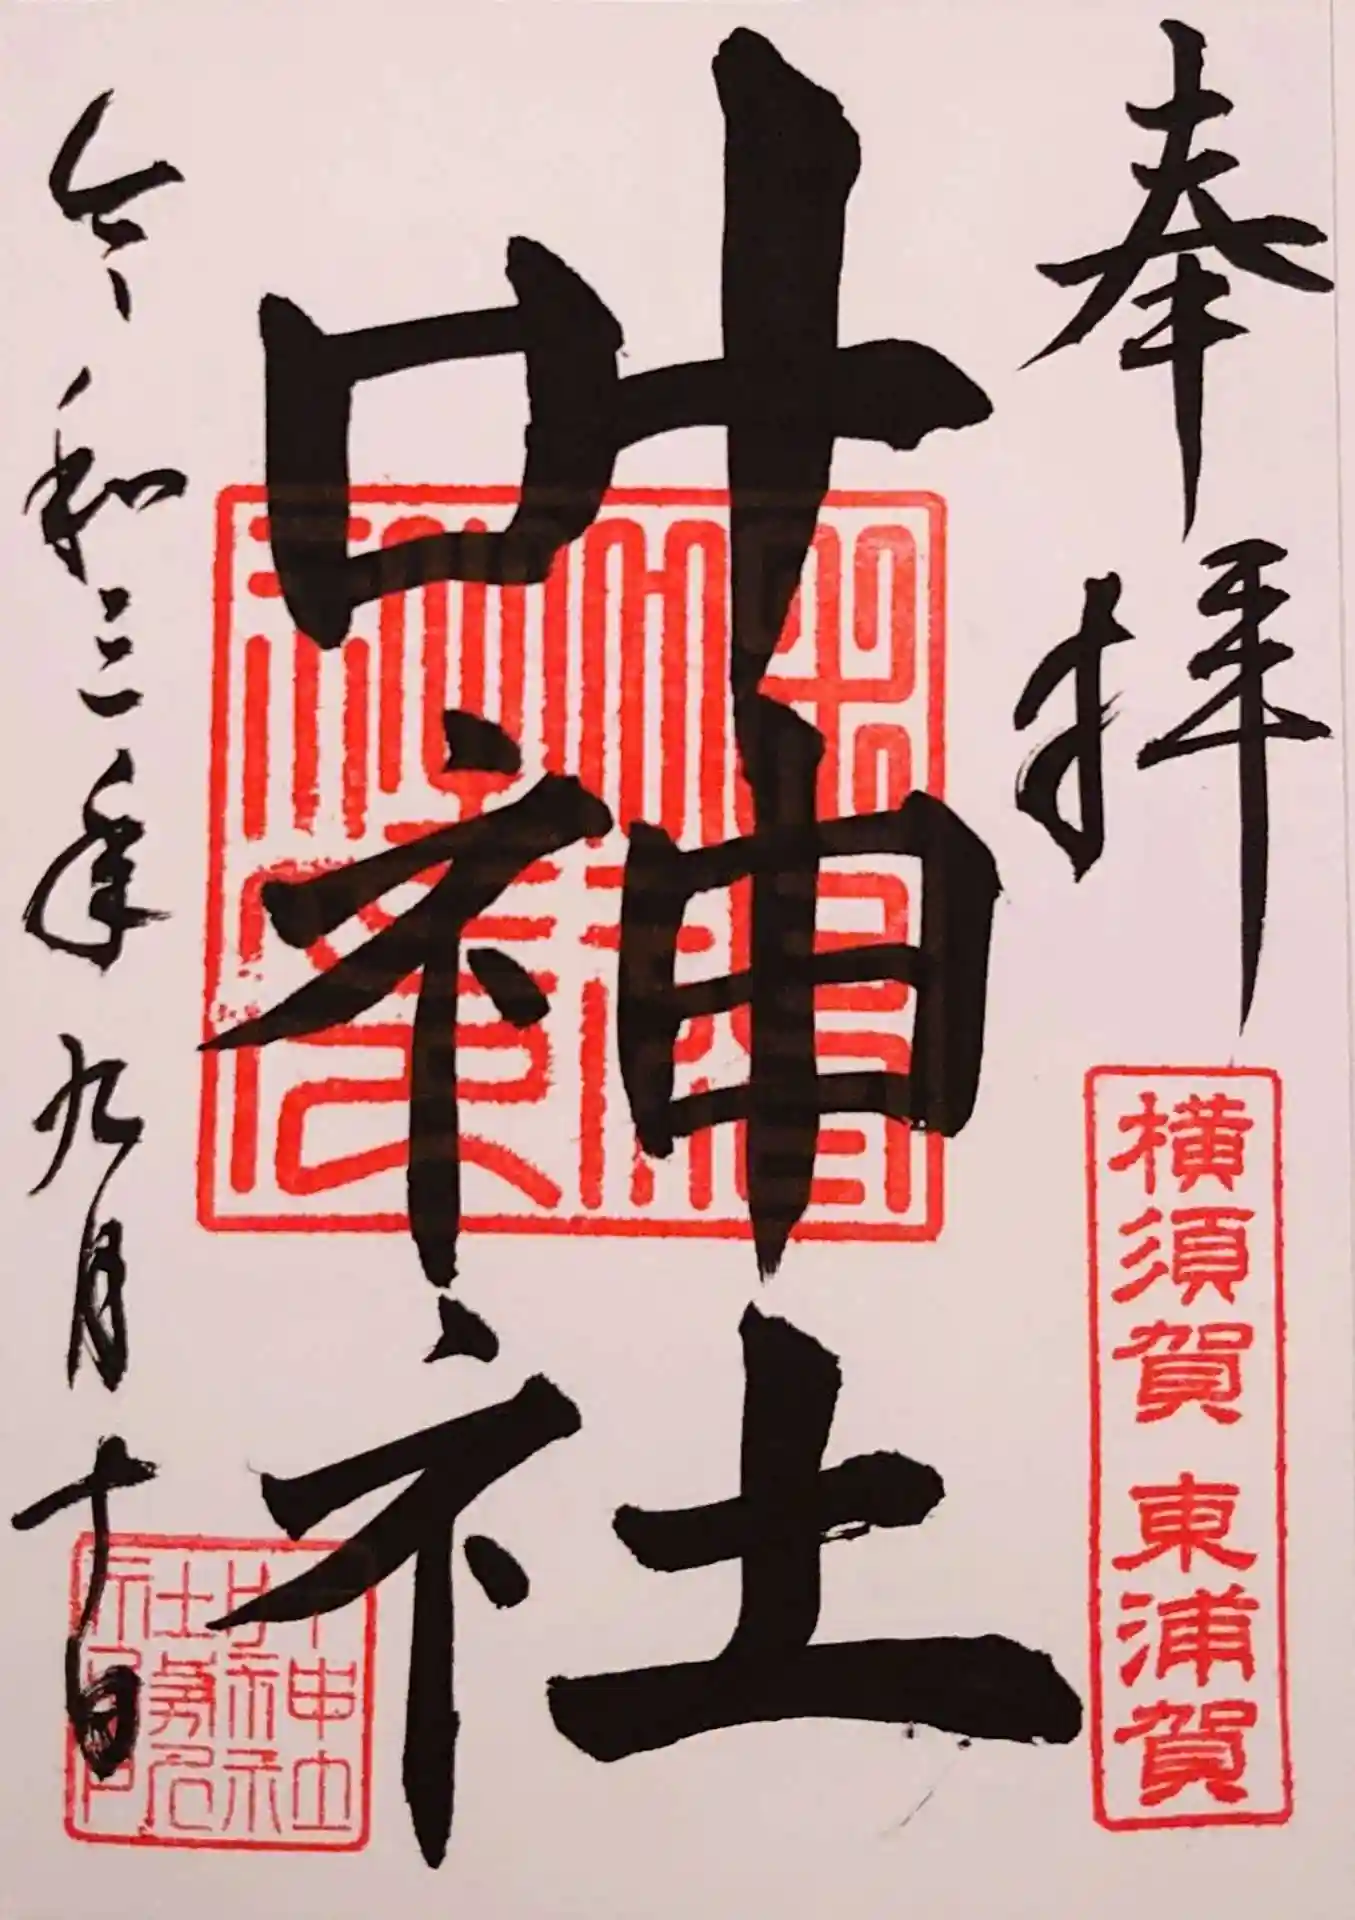 奉拝
横須賀 東浦賀
叶神社
令和三年九月十日